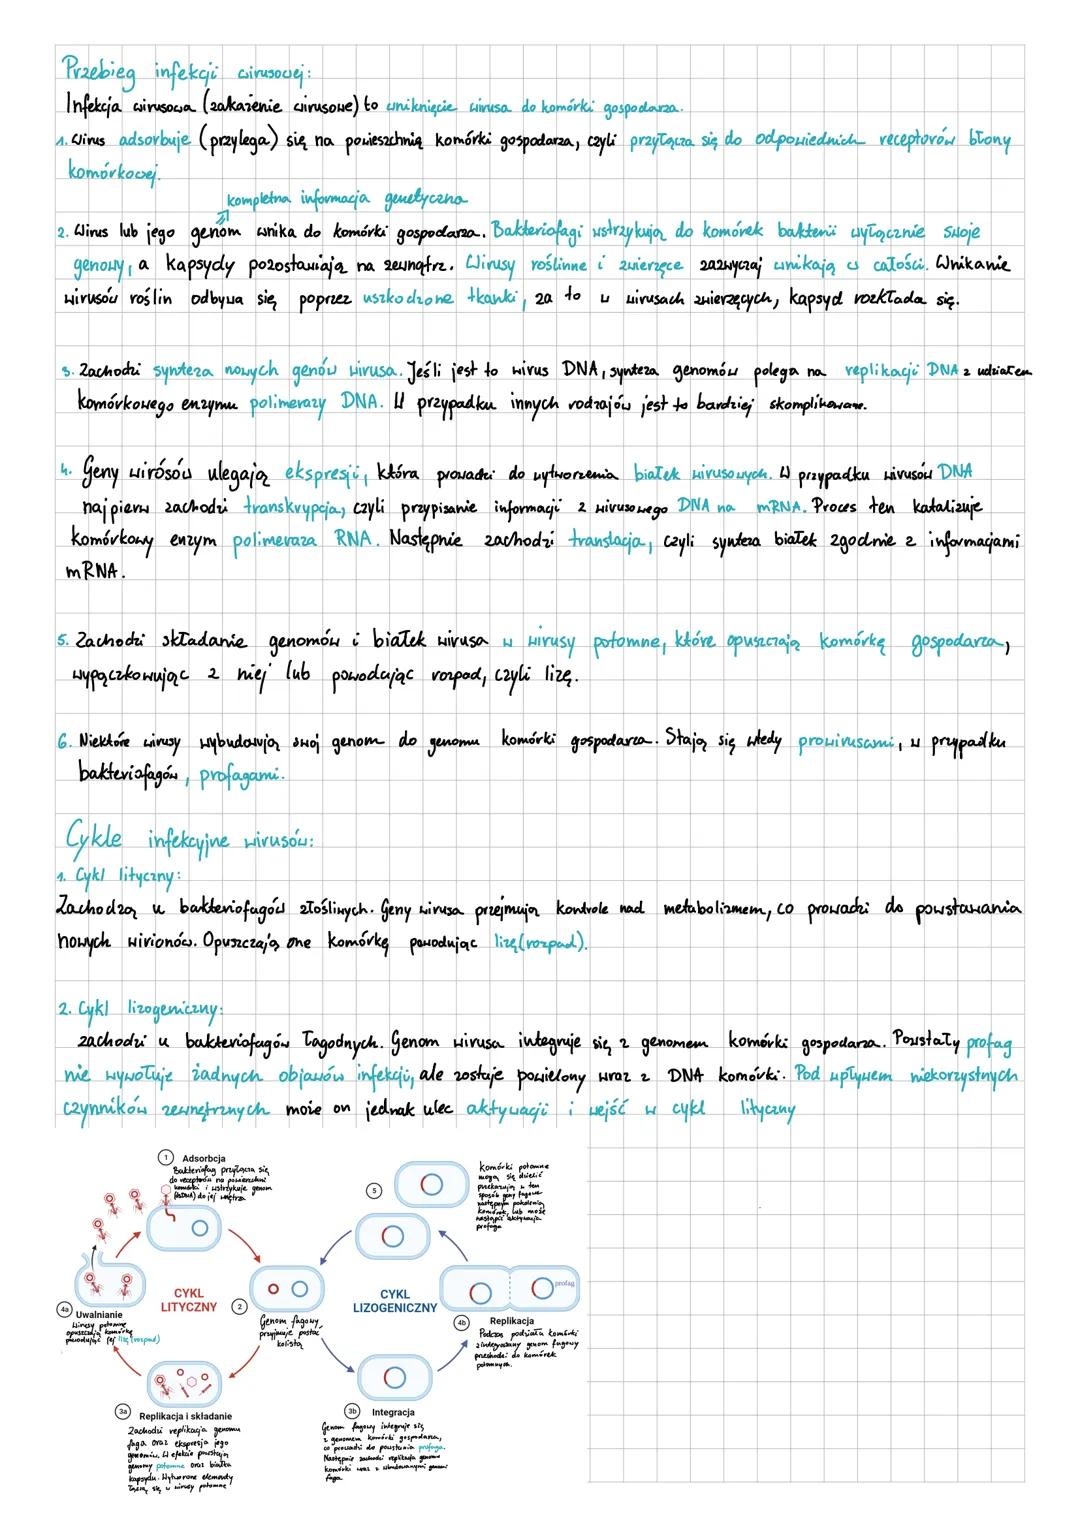 Przebieg infekcji wirusowej:
Infekcja wirusowa (zakażenie wirusowe) to wniknięcie wirusa do komórki gospodarza.
1. Wirus adsorbuje (przylega) się na powierzchnią komórki gospodarza, czyli przyłącza się do odpowiednich receptorów błony
komórkowej.
kompletna informacja genetyczna
2. Wirus lub jego genom wnika do komórki gospodarza. Bakteriofagi wstrzykują do komórek bakterii wyłącznie swoje
genowy, a kapsydy pozostawiają na zewnątrz. Wirusy roślinne i zwierzęce zazwyczaj wnikają w całości. Wnikanie
wirusów roślin odbywa się poprzez uszkodzone tkanki, za to w wirusach zwierzęcych, kapsyd rozkłada się.
3. Zachodzi synteza nowych genów wirusa. Jeśli jest to wirus DNA, synteza genomów polega na replikacji DNA z udziałem
komórkowego enzymu polimerazy DNA. W przypadku innych rodzajów jest to bardziej skomplikowane.
4. Geny wirósów ulegają ekspresji, która prowadzi do wytworzenia białek wirusowych. W przypadku wirusów DNA
najpierw zachodzi transkrypcja, czyli przypisanie informacji z wirusowego DNA na mRNA. Proces ten katalizuje
komórkowy enzym polimeraza RNA. Następnie zachodzi translacja, czyli synteza białek zgodnie z informacjami
mRNA.
5. Zachodzi składanie genomów i białek wirusa w wirusy potomne, które opuszczają komórkę gospodarza,
wypączkowując z niej lub powodując rozpad, czyli lizę.
6. Niektóre wirusy wybudowują swój genom do genomu komórki gospodarza. Stają się wtedy prowirusami, w przypadku
bakteriofagów, profagami.
Cykle infekcyjne wirusów:
1. Cykl lityczny:
Zachodzą u bakteriofagów złośliwych. Geny wirusa przejmują kontrole nad metabolizmem, co prowadzi do powstawania
nowych wirionów. Opuszczają one komórkę powodując lizę(rozpad).
2. Cykl lizogeniczny:
zachodzi u bakteriofagów łagodnych. Genom wirusa integruje się z genomem komórki gospodarza. Powstały profag
nie wywołuje żadnych objawów infekcji, ale zostaje powielony wraz z DNA komórki. Pod wpływem niekorzystnych
czynników zewnętrznych może on jednak ulec aktywacji i wejść w cykl lityczny
1 Adsorbcja
Bakteriofag przyłącza się
do receptorów na powierzchni
komórki i wstrzykuje genom
(dsDNA) do jej wnętrza
CYKL
LITYCZNY
2
Genom fagowy
przyjmuje postać
kolistą
3a Replikacja i składanie
Zachodzi replikacja genomu
faga oraz ekspresja jego
genomu. W efekcie powstają
genomy potomne oraz białka
kapsydu. Wytworzone elementy
łączą się w wirusy potomne
4a Uwalnianie
Wirusy potomne
opuszczają komórkę
powodując jej lizę (rozpad)
CYKL
LIZOGENICZNY
3b Integracja
Genom fagowy integruje się
z genomem komórki gospodarza,
co prowadzi do powstania profaga.
Następnie zachodzi replikacja genomu
komórki wraz z wbudowanymi genami
faga
4b Replikacja
Podczas podziału komórki
zintegrowany genom fagowy
przechodzi do komórek
potomnych.
profag
5
Komórki potomne
mogą się dzielić
przekazując w ten
sposób geny fagowe
następnym pokoleniom
komórek, lub może
nastąpić aktywacja
profaga